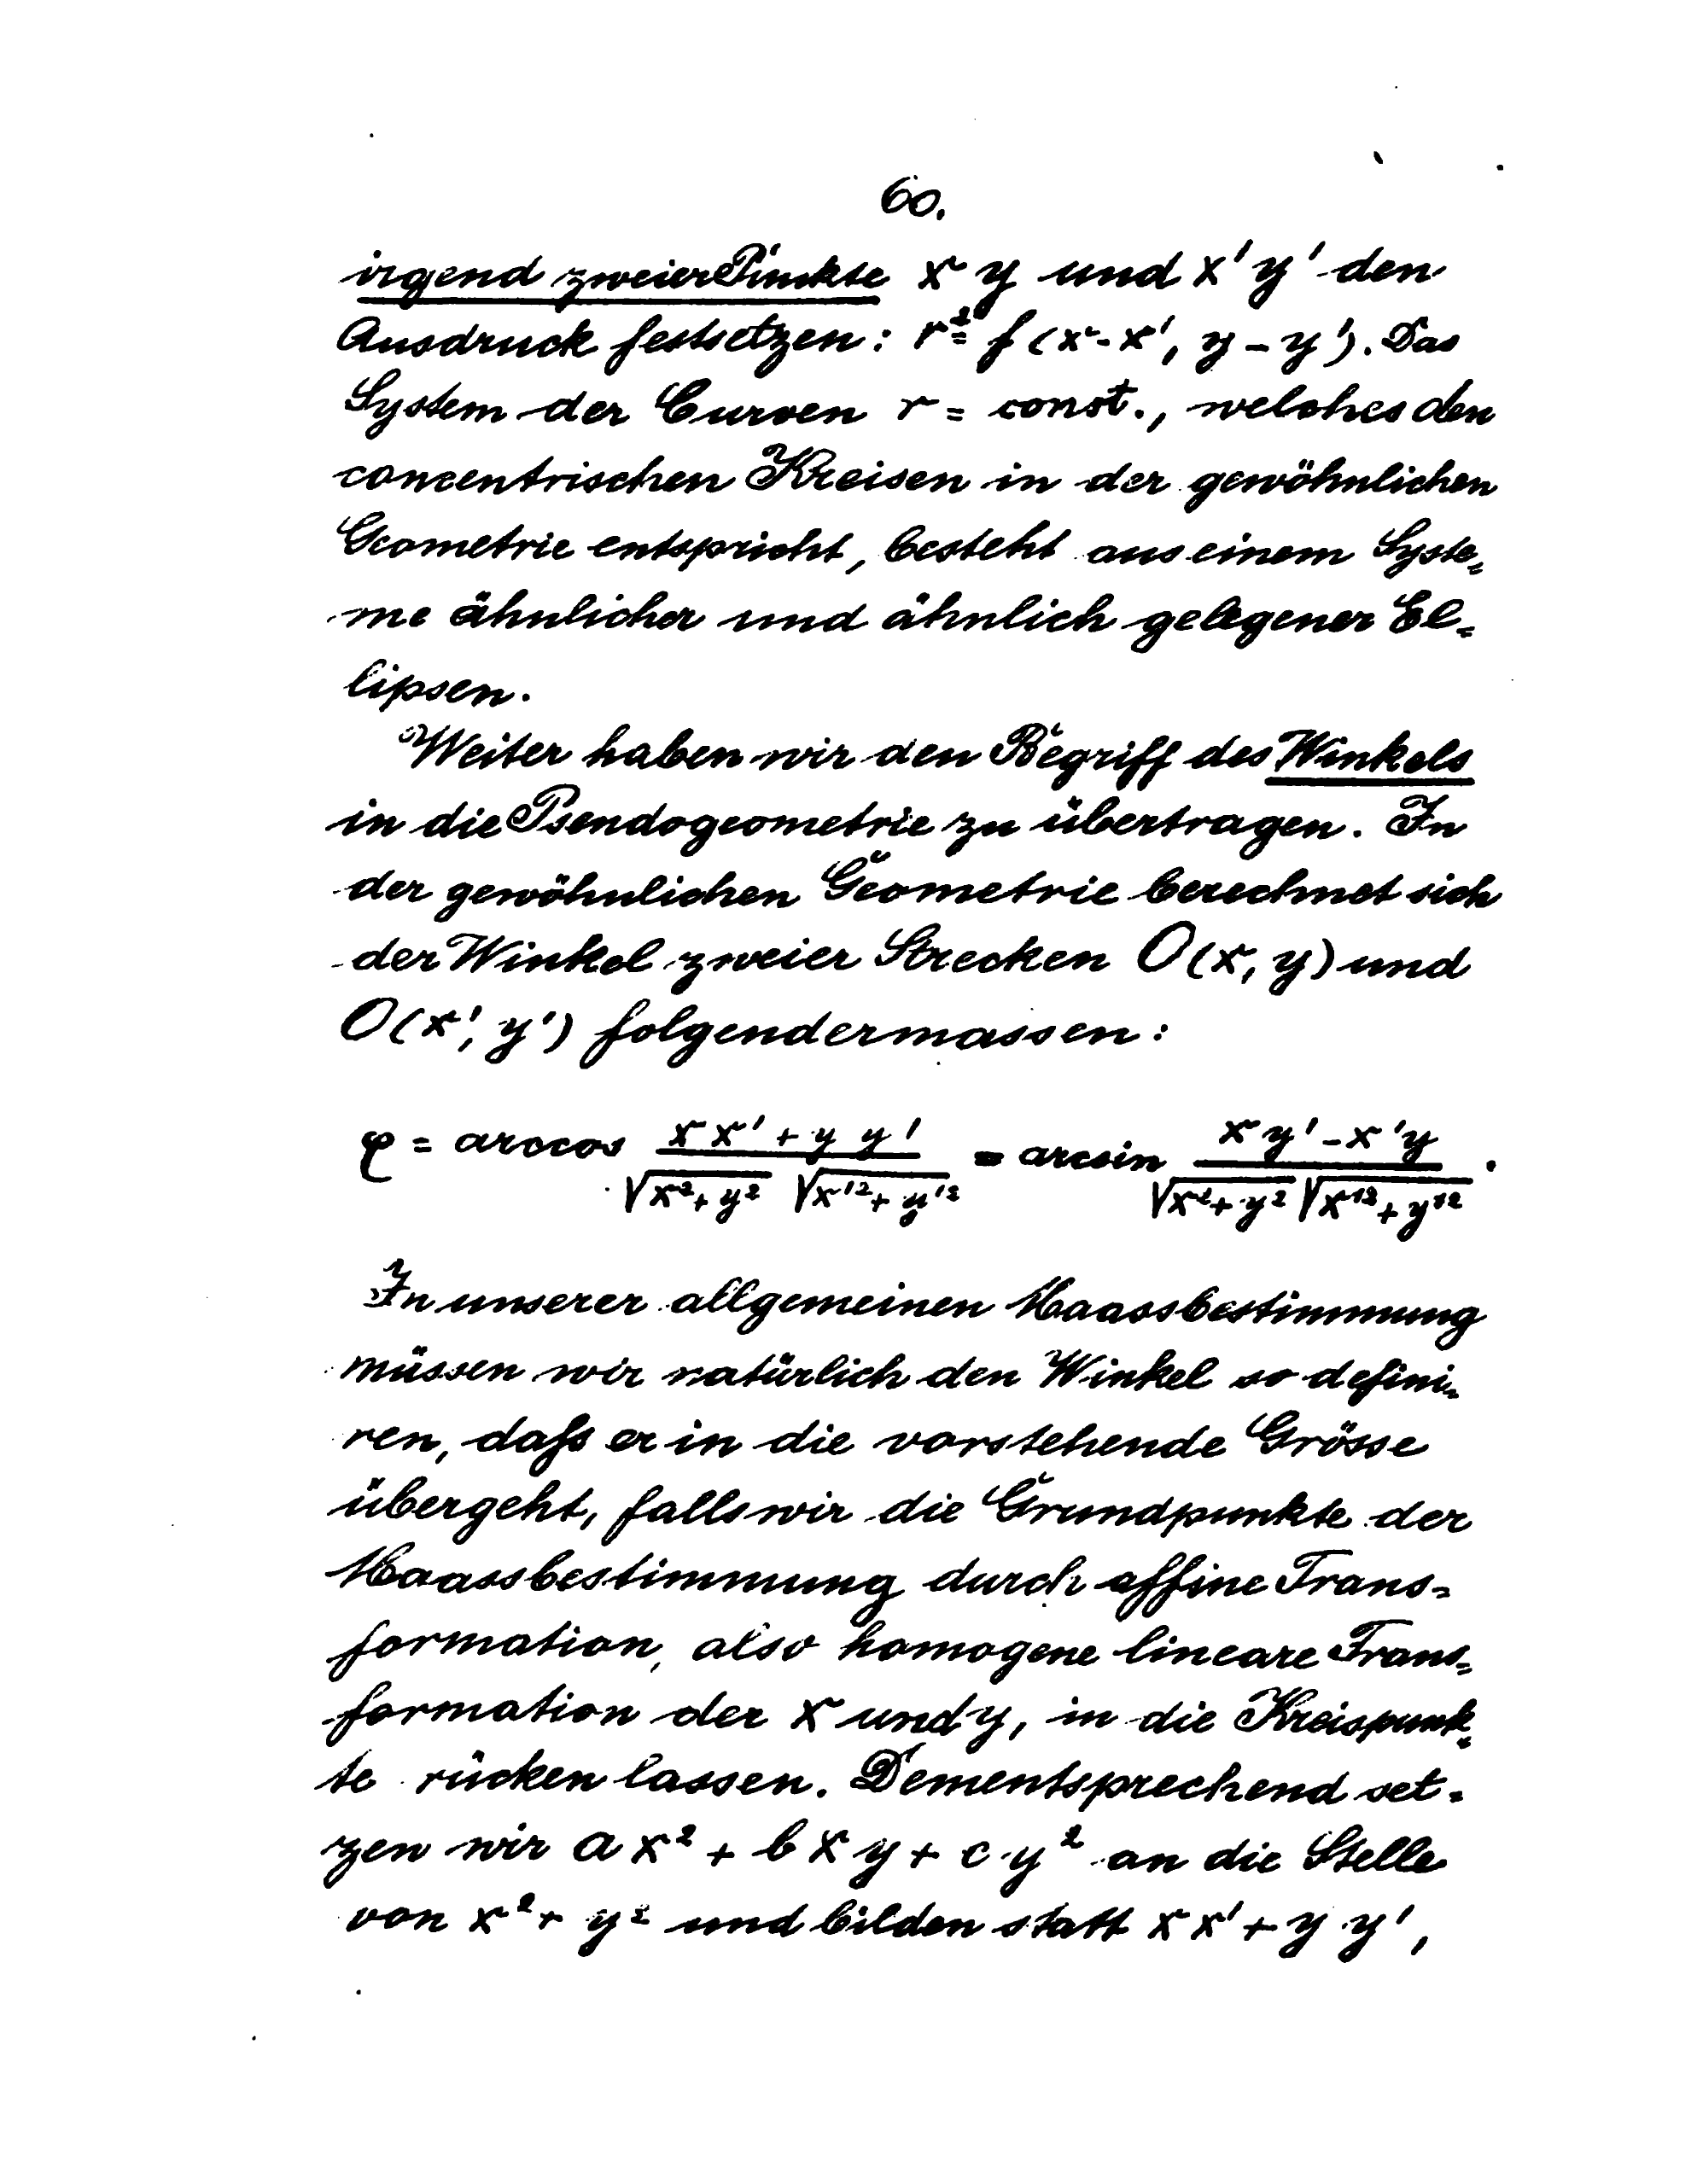 60.
irgend zweier Punkte x y und x' y' den
Ausdruck festsetzen: r² = f (x - x', y - y'). Das
System der Curven r = const., welches den
concentrischen Kreisen in der gewöhnlichen
Geometrie entspricht, besteht aus einem Syste=
me ähnlicher und ähnlich gelegener El=
lipsen.
Weiter haben wir den Begriff des Winkels
in die Pseudogeometrie zu übertragen. In
der gewöhnlichen Geometrie berechnet sich
der Winkel zweier Strecken O(x, y) und
O(x', y') folgendermassen:
φ = arccos (x x' + y y') / (√(x² + y²) √(x'² + y'²)) = arcsin (x y' - x' y) / (√(x² + y²) √(x'² + y'²)).
In unserer allgemeinen Maassbestimmung
müssen wir natürlich den Winkel so defini=
ren, daſs er in die vorstehende Grösse
übergeht, falls wir die Grundpunkte der
Maassbestimmung durch affine Trans=
formation, also homogene lineare Trans=
formation der x und y, in die Kreispunk=
te rücken lassen. Dementsprechend set=
zen wir a x² + b x y + c y² an die Stelle
von x² + y² und bilden statt x x' + y y',